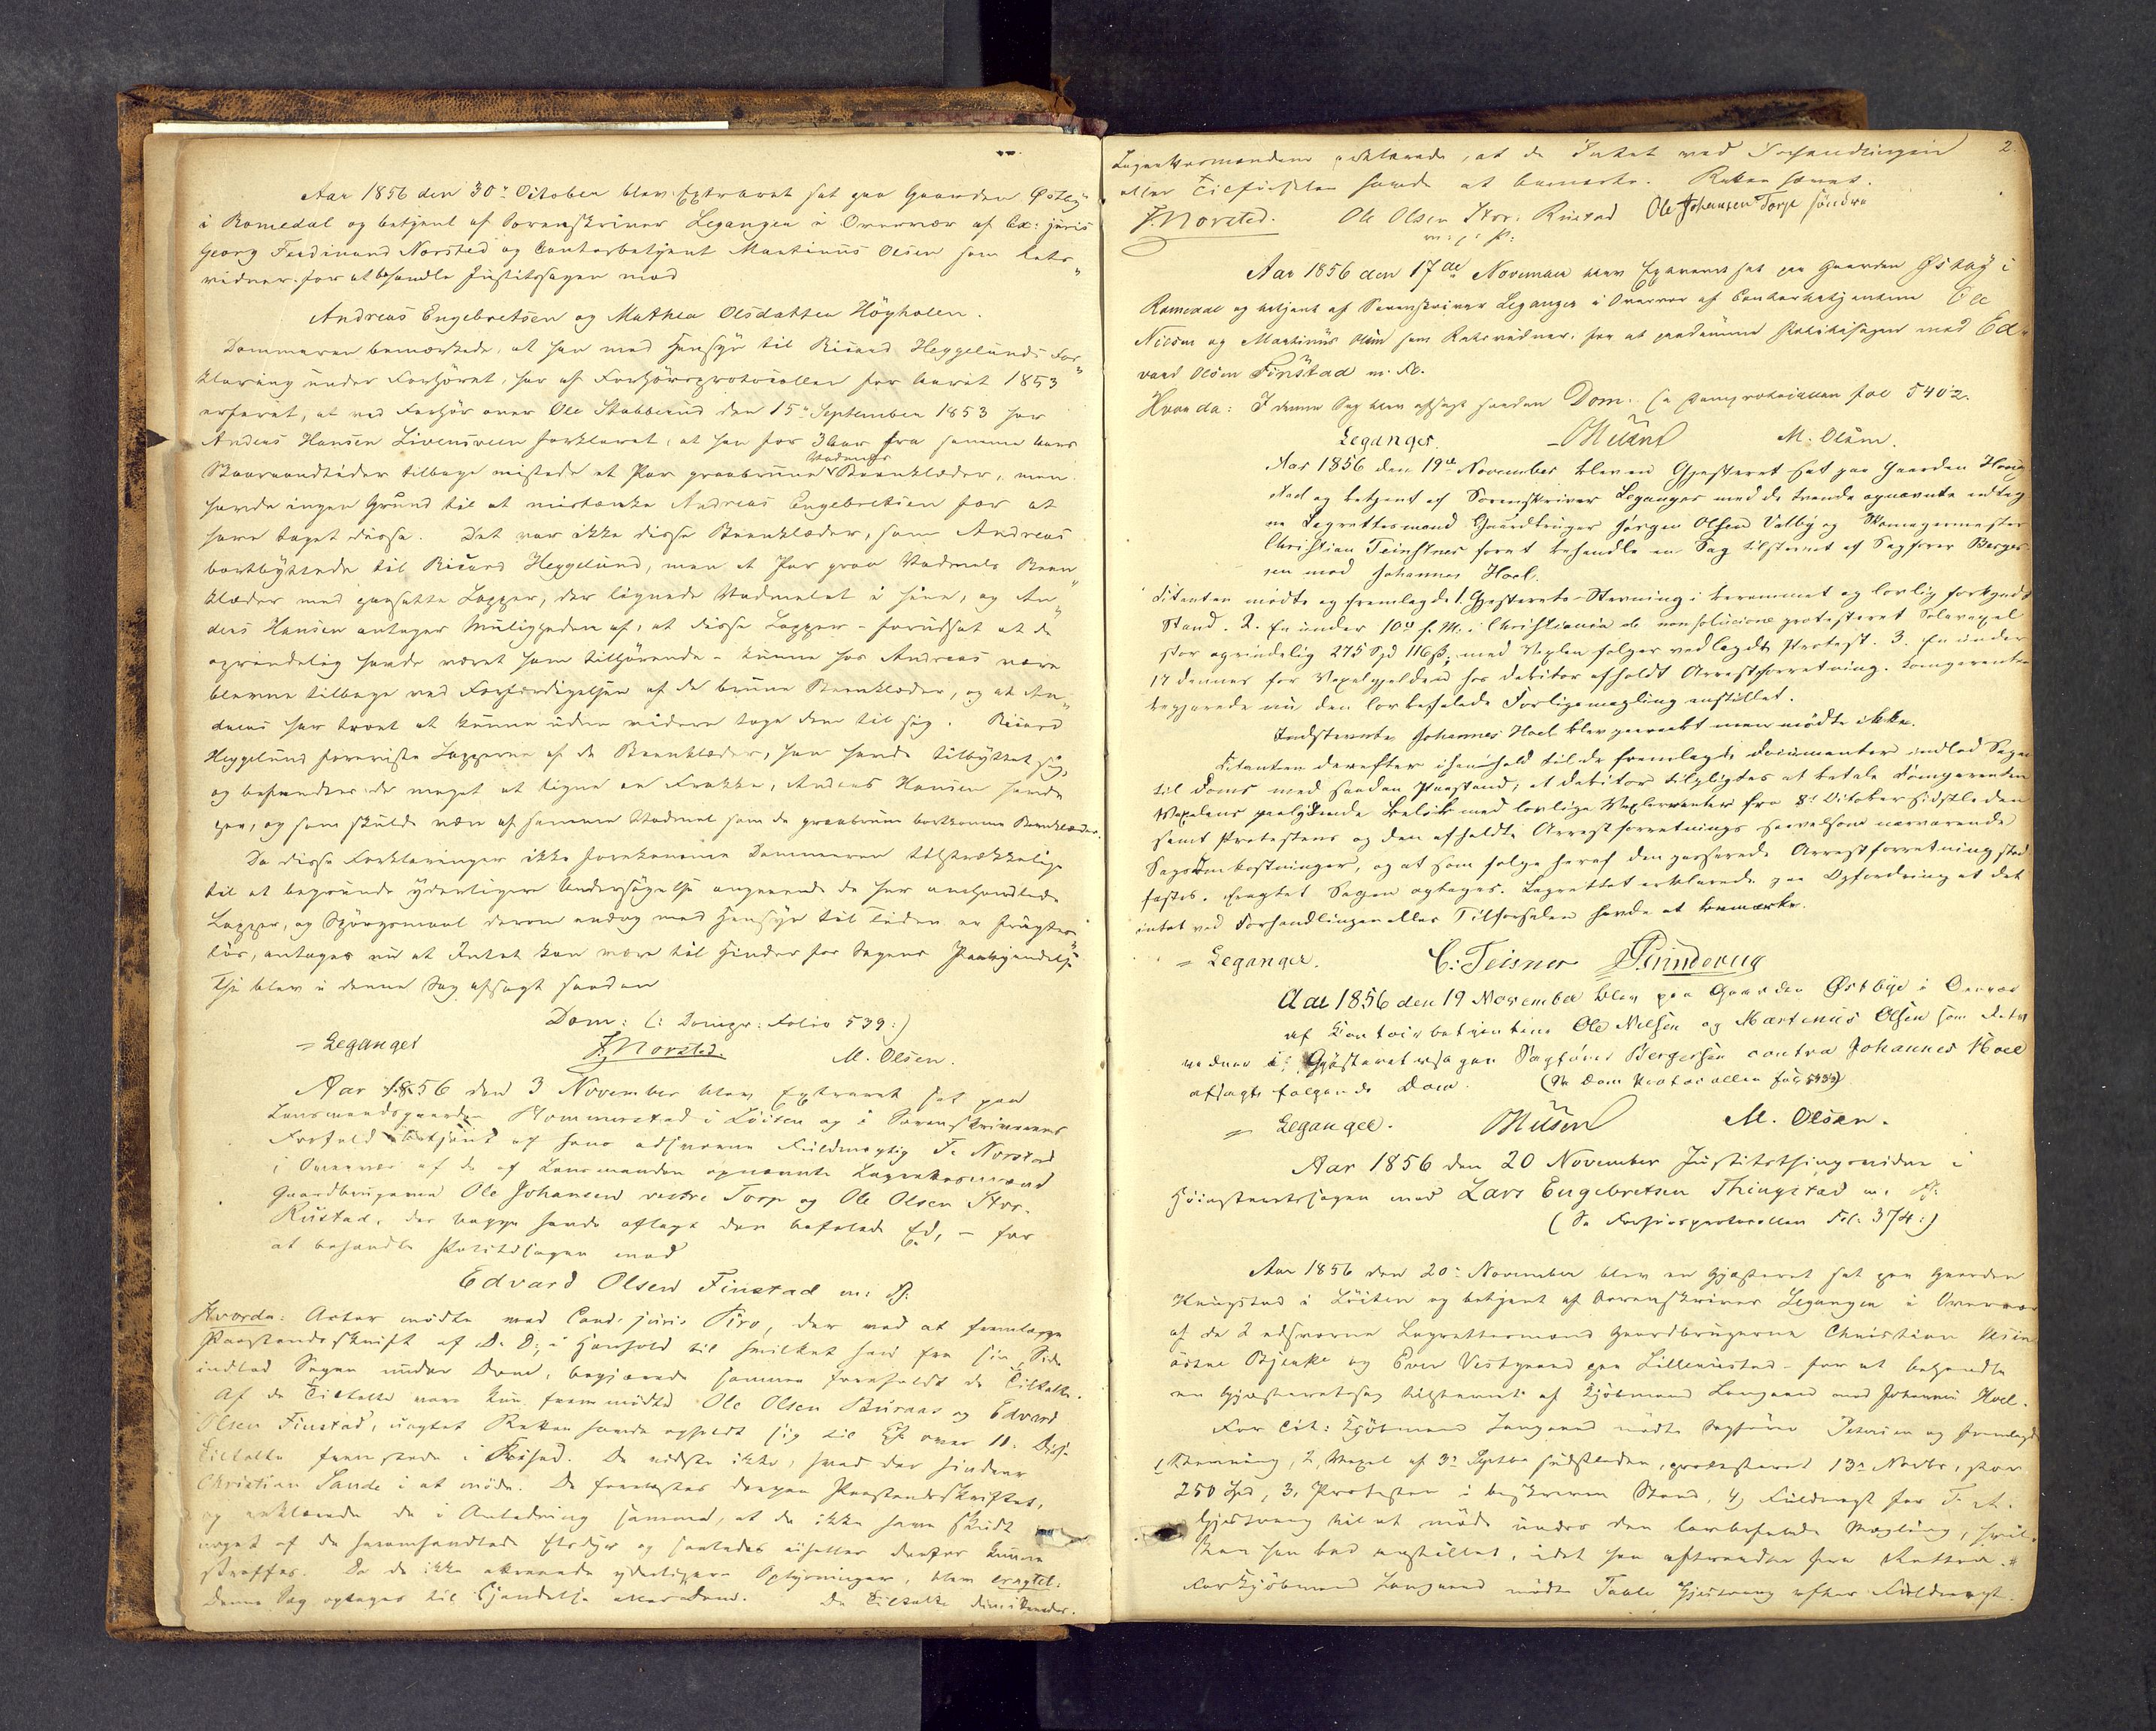 Aar 1856 den 30te October blev Extraret sat paa Gaarden Østby
i Romedal og betjent af Sorenskriver Leganger i Overvær af Ex: juris
Georg Ferdinand Norsted og Contorbetjent Martinus Olsen som Rets-
vidner, for at behandle Justitssagen mod
Andreas Engebretsen og Mathea Olsdatter Höyholen.
Dommeren bemærkede, at han med Hensyn til Ricard Heggelunds For-
klaring under Forhöret, har af Forhörsprotocollen for Aaret 1853
erfaret, at ved Forhör over Ole Stabberud den 15de September 1853 har
Andreas Hansen Livensveen forklaret, at han for 3 Aar fra samme Aars
Vaaraandtider tilbage mistede et Par graabrune Vadmels Beenklæder, men
havde ingen Grund til at mistænke Andreas Engebretsen for at
have taget disse. Det var ikke disse Beenklæder, som Andreas
bortbyttede til Ricard Heggelund, men et Par graa Vadmels Been-
klæder med paasatte Lapper, der lignede Vadmelet i hine, og An-
dreas Hansen antager Muligheden af, at disse Lapper - forudsat at de
oprindelig havde været ham tilhörende - kunne hos Andreas være
blevne tilbage ved Forfærdigelsen af de brune Beenklæder, og at An-
dreas har troet at kunne uden videre tage dem til sig. Ricard
Heggelund foreviste Lapperne af de Beenklæder, han havde tilbyttet sig,
og befandtes de meget at ligne en Frakke, Andreas Hansen havde
paa, og som skulde være af samme Vadmel som de graabrune bortkomne Beenklæder.
Da disse Forklaringer ikke forekomme Dommeren tilstrækkelige
til at begrunde yderligere Undersögelse angaaende de her omhandlede
Lapper, og Spörgsmaal derom endog med Hensyn til Tiden er frugtes-
lös, antages nu at Intet kan være til Hinder for Sagens Paakjendelse
Thi blev i denne Sag afsagt saadan
Dom: (: Dompr: Folio 539:)
= Leganger F. Norsted. M. Olsen.
Aar 1856 den 3 November blev Extraret sat paa
Lensmandsgaarden Hommerstad i Löiten og i Sorenskriverens
Forfald betjent af hans edsvorne Fuldmægtig F. Norsted
i Overvær af de af Lensmanden opnævnte Lagrettesmænd
Gaardbrugerne Ole Johansen vestre Torp og Ole Olsen Stor-
Rustad, der begge havde aflagt den befalede Ed, - for
at behandle Politisagen mod
Edvard Olsen Finstad m: fl:
Hvorda: Actor mödte ved Cand. juris Piro, der ved at fremlægge
Paastandsskrift af D. D., i Henhold til hvilket han fra sin Side
indlod Sagen under Dom, begjærede samme foreholdt de Tiltalte.
Af de Tiltalte vare kun fremmödte Ole Olsen Buraas og Edvard
Olsen Finstad, uagtet Retten havde opholdt sig til Kl. over 11. Disse
Tiltalte fremstode i Frihed. De vidste ikke, hvad der hindrer
Christian Sande i at möde. De forelæstes derpaa Paastandsskriftet,
og erklærede de i Anledning sammes, at de ikke have skudt
noget af de heromhandlede Elsdyr og saaledes eiheller derfor kunne
straffes. Da de ikke attraaede yderligere Oplysninger, blev eragtet:
Denne Sag optages til Kjendelse eller Dom. De Tiltalte dimitteredes.
2.
Lagrettesmændene erklærede, at de Intet ved Forhandlingen
eller Tilförselen havde at bemærke. Retten hævet.
F. Norsted. Ole Olsen Stor: Rustad Ole Johansen Torp söndre
m: p: P:
Aar 1856 den 17de November blev Extraret sat paa Gaarden Østby i
Romedal og betjent af Sorenskriver Leganger i Overvær af Contorbetjentene Ole
Nielsen og Martinus Olsen som Retsvidner, for at paadömme Politisagen mod Ed-
vard Olsen Finstad m. Fl.
Hvorda: I denne Sag blev afsagt saadan Dom. (: Domprotocollen fol 540:2.
Leganger. ONilsen M. Olsen.
Aar 1856 den 19de November blev en Gjesteret sat paa Gaarden Houg-
stad og betjent af Sorenskriver Leganger med de tvende opnævnte edtag-
ne Lagrettesmænd Gaardbruger Jörgen Olsen Valby og Skomagermester
Christian Teinstner foret behandle en Sag tilstevnt af Sagförer Berges-
sen mod Johannes Hoel.
Citanten mödte og fremlagde 1. Gjesterets-Stevning i berammet og lovlig forkyndt
Stand. 2. En under 10de f. M. i Christiania de non solucione protesteret Solavexel
stor oprindelig 275 Spd 116 ß, med Vexlen folger vedlagdt Protest. 3. En under
17 dennes for Vexelgjelden hos Debitor afholdt Arrestforretning. Comparenten
begjærede nu den lovbefalede Forligsmægling anstillet.
Indstevnte Johannes Hoel blev paaraabt men mödte ikke.
Citanten derefter i henhold til de fremlagde Documenter indlod Sagen
til Doms med saadan Paastand, at Debitor tilpligtes at betale Comparenten
Vexelens paalydende Belöb med lovlige Vexlerenter fra 8de October sidstleden
samt Protestens og den afholdte Arrestforretnings saavelsom nærværende
Sags Omkostninger, og at som folge heraf den passerede Arrestforretning stad-
fæstes. Eragtet Sagen optages. Lagrettet erklærede paa Opfordring at det
intet ved Forhandlingen eller Tilforselen havde at bemærke.
= Leganger. C: Teisner
Aar 1856 den 19 November blev paa Gaarden Østbye i Overvær
af Contoirbetjentene Ole Nielsen og Martinus Olsen som Rets-
vidner i Gjesteretssagen Sagförer Bergersen contra Johannes Hoel
afsagt folgende Dom. (Se Dom Protocollen fol:
= Leganger. ONilsen M. Olsen.
Aar 1856 den 20 November Justitsthingsvidne i
Höiesteretssagen mod Lars Engebretsen Thingstad m. fl:
(Se Forhörsprotocollen Fol: 374:)
Aar 1856 den 20de November blev en Gjesteret sat paa Gaarden
Hougstad i Löiten og betjent af Sorenskriver Leganger i Overvær
af de 2 edsvorne Lagrettesmænd Gaardbrugerne Christian Olsen
östre Bjerke og Even Vestgaard paa Lillerustad - for at behandle
en Gjesteretssag tilstevnet af Kjöbmand Langaard mod Johannes Hoel.
For Cit: Kjöbmand Langaard mödte Sagförer Petersen og fremlagde
1, Stevning, 2, Vexel af 3de Septbr sidstleden, protesteret 13de Novbr, stor
250 Spd, 3, Protesten i beskreven Stand, 4, Fuldmagt for T. A.
Gjestvang til at möde under den lovbefalede Mægling, hvil-
ken han bad anstillet, idet han aftraadte fra Retten.
For Kjöbmand Langaard mödte Gjestvang efter Fuldmagt.